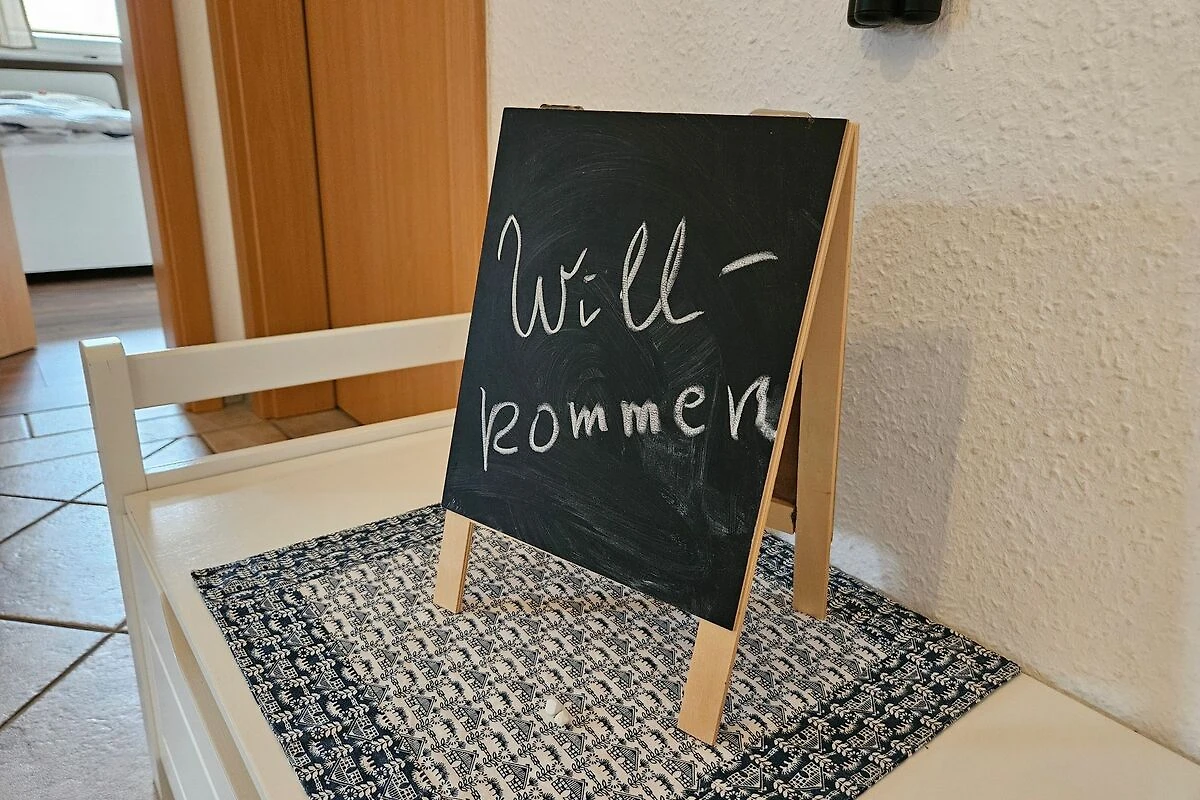 Will-
kommen